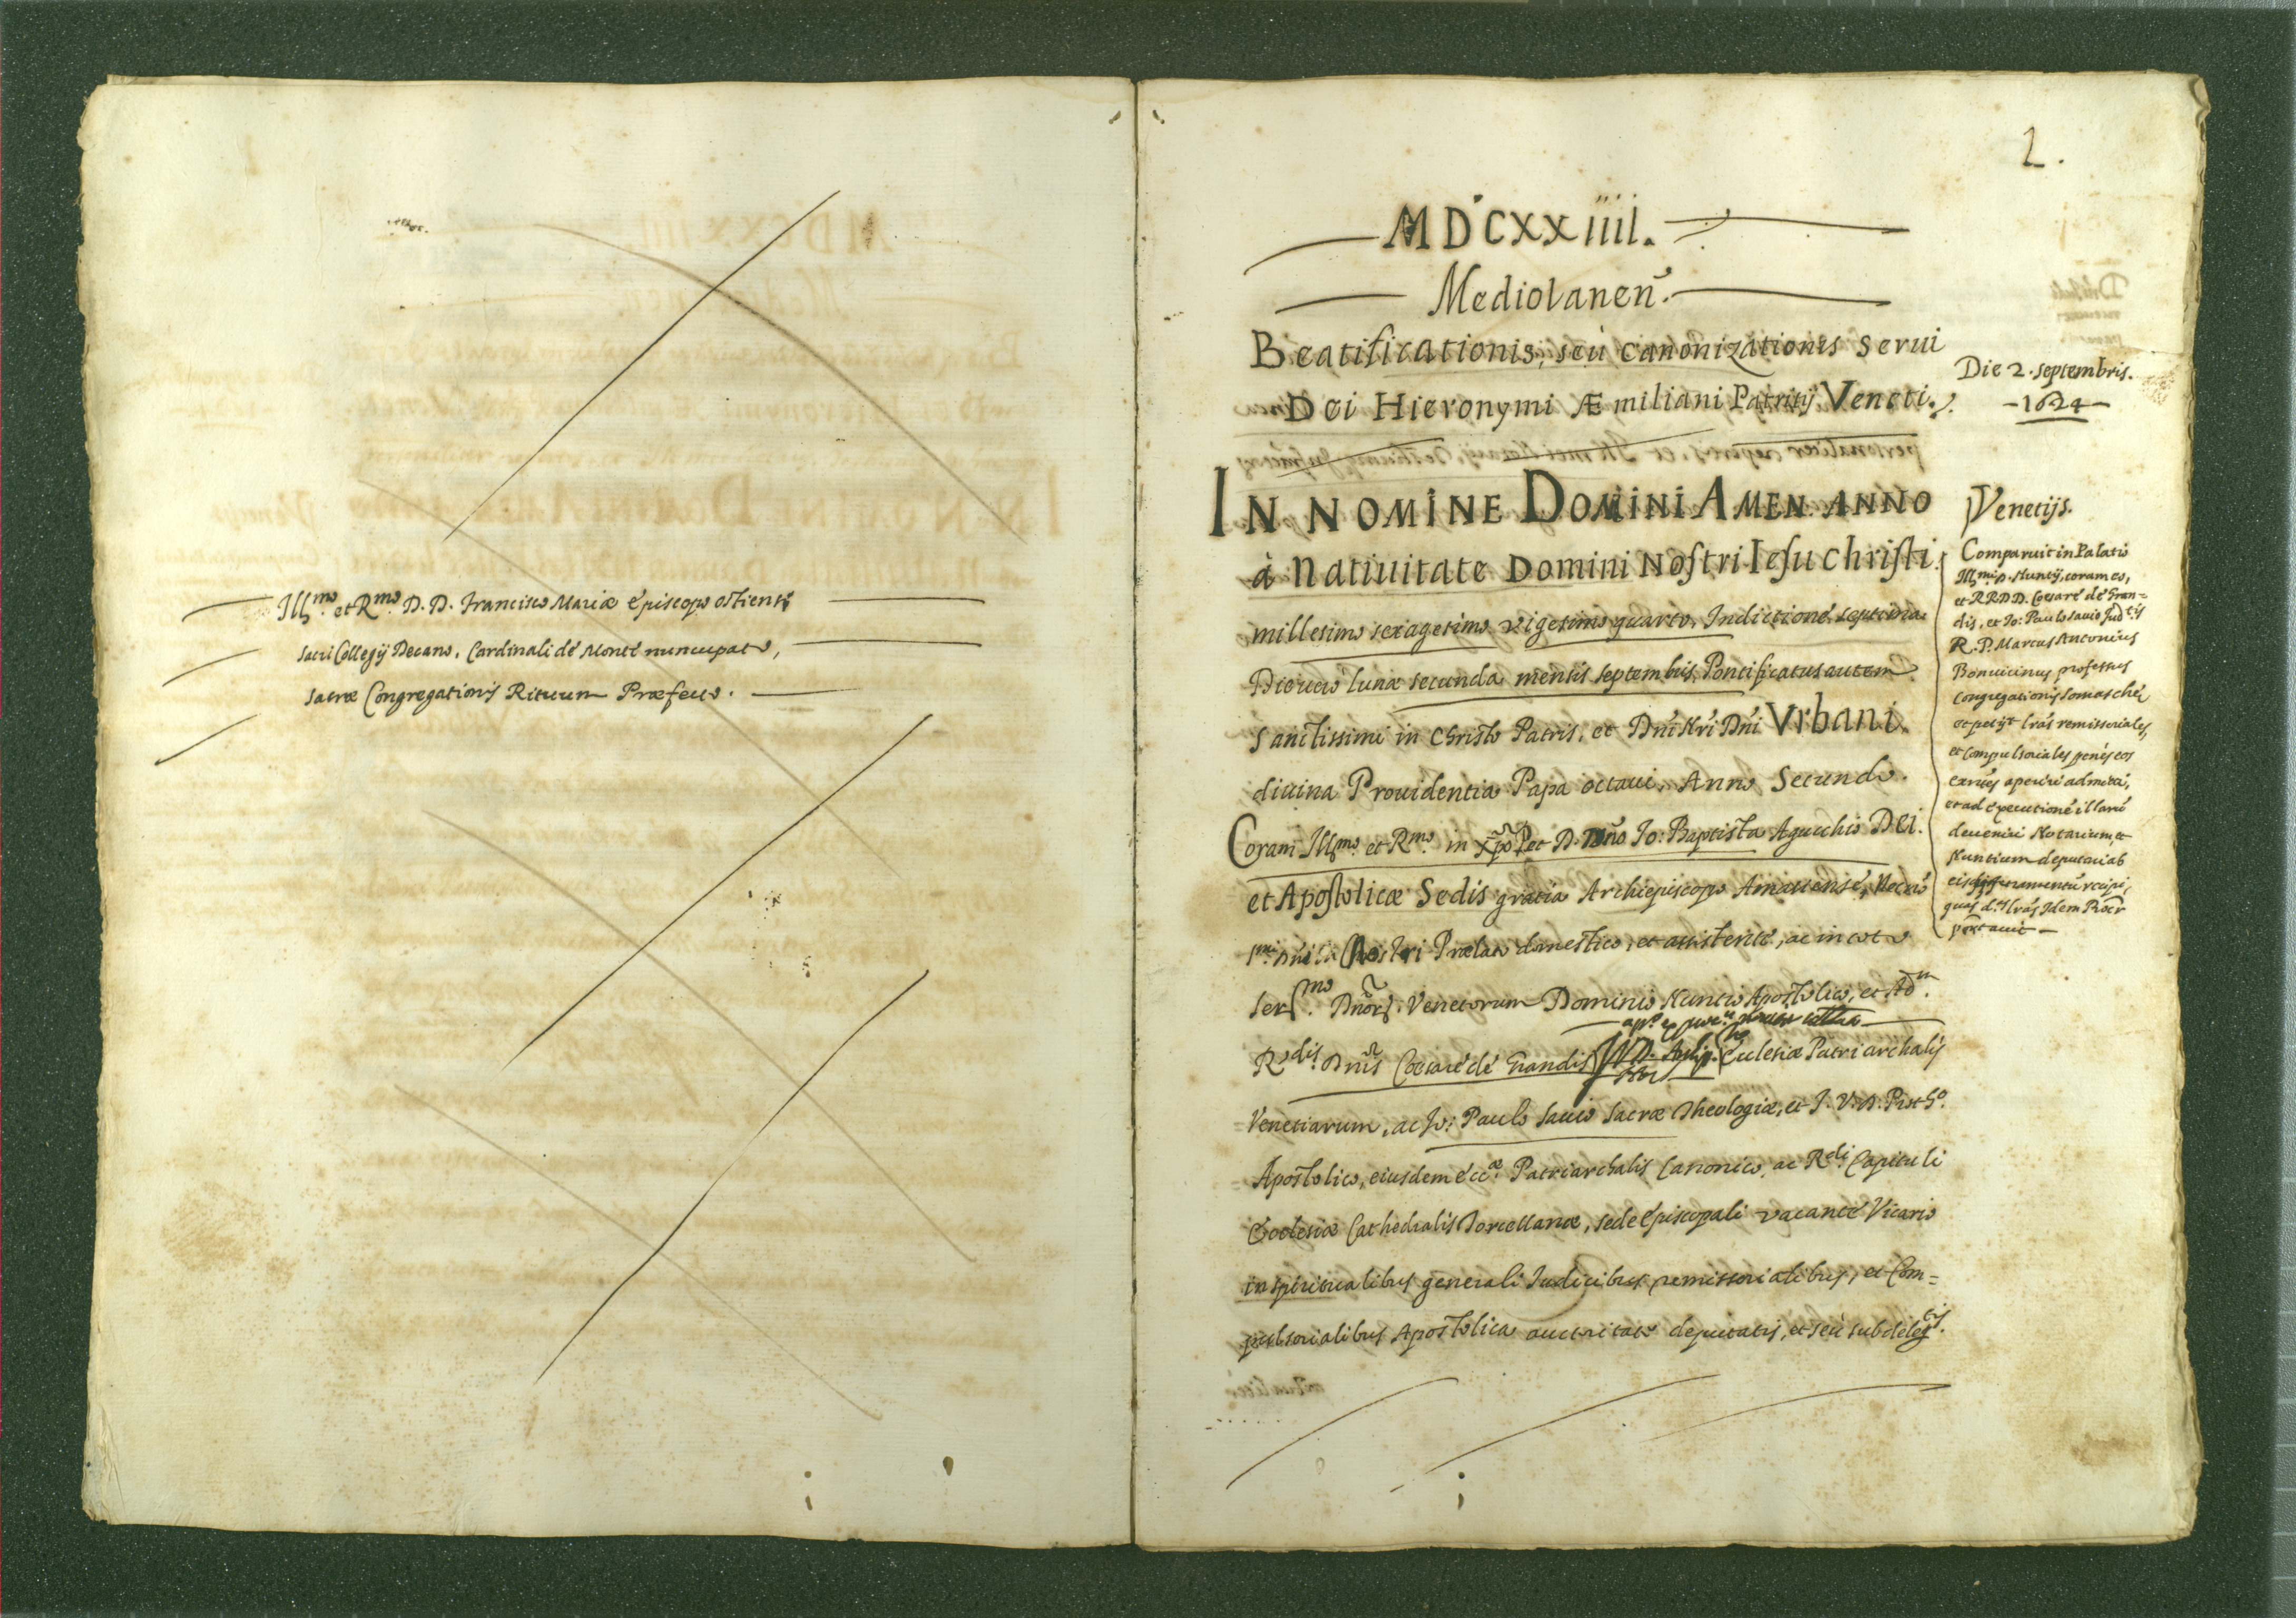 Illmo. et Rmo. D. D. Francisco Mariæ Episcopo ostiensi
sacri Collegij Decano, Cardinali de Monte nuncupato,
sacræ Congregationis Rituum Præfecto.
2.
MDCXXiiii.
Mediolanen̄.
Beatificationis, seù canonizationis serui
Dei Hieronymi Æmiliani Patritij Veneti.
Die 2. septembris.
1624
IN NOMINE DOMINI AMEN. ANNO
à Natiuitate Domini Nostri Iesu christi
millesimo sexagesimo vigesimo quarto, Indictione septima
Die uero lunæ secunda mensis septembris, Pontificatus autem
sanctissimi in christo Patris, et Dn̄i Nr̄i Dn̄i Vrbani
diuina Prouidentia Papa octaui, Anno Secundo.
Coram Illmo. et Rmo. in Xp̄o P. et D. Dn̄o Io: Baptista Agucchio Dei
et Apostolicæ Sedis gratia Archiepiscopo Amasiense, Necnō
Nostri Prælato domestico, et assistente, ac in toto
sermo. Dn̄or. Venetorum Dominio Nuncio Apostolico, et Ad
Rdis. Dn̄is Cœsare de Grandis Ecclesiæ Patriarchalis
Venetiarum, ac Io: Paulo sauio sacræ Theologiæ, et I. V. D. Protho.
Apostolico, eiusdem eccæ. Patriarchalis Canonico, ac Rdi. Capituli
Ecclesiæ Cathedralis Torcellanæ, sede episcopali vacante Vicario
in spiritualibus generali Iudicibus remissorialibus, et Com=
pulsorialibus Apostolica auctoritate deputatis, et seù subdelegtis.
Venetijs.
Comparuit in Palatio
Illmi. D. Nuntij, coram eo,
et RR DD. Cœsare de Gran=
dis, et Io: Paulo sauio Judtijs
R. P. Marcus Antonius
Bonuicinus professus
congregationis somaschæ
et petijt lrās remissoriales,
et compulsoriales penès eos
aperiri admitti,
et ad executionē illarū
deueniri Notarium, et
Nuntium deputari ab
eis iuramentū recipi,
quas ds. lrās Idem Procr